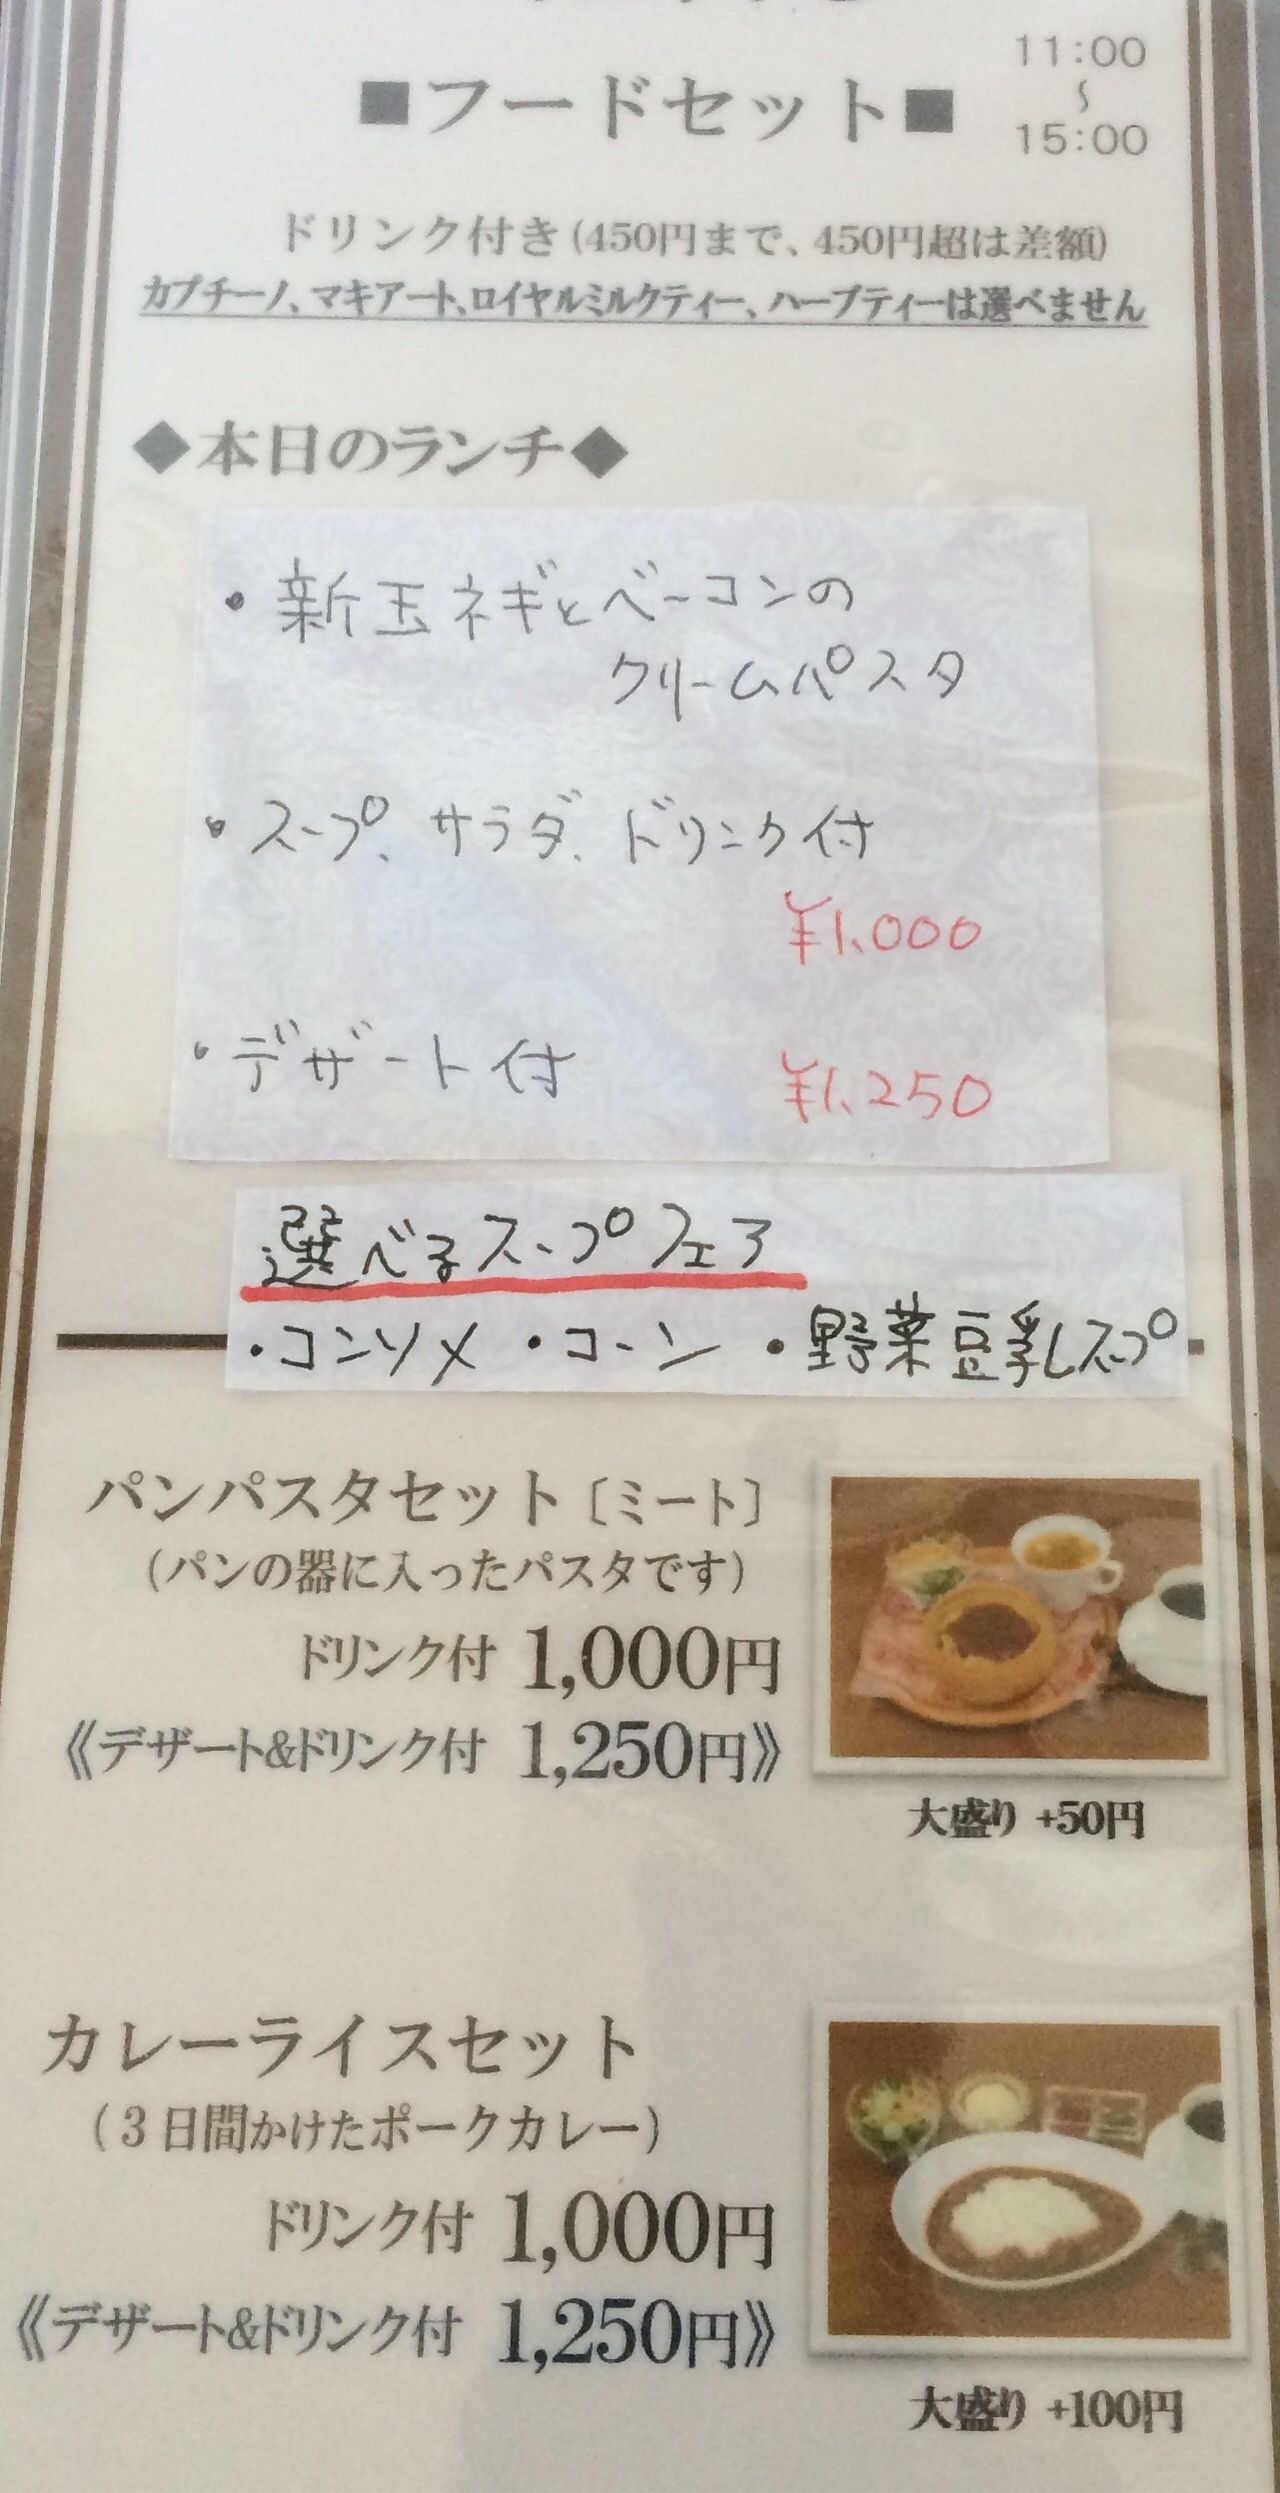 11:00
〜
15:00
■フードセット■
ドリンク付き(450円まで、450円超は差額)
カプチーノ、マキアート、ロイヤルミルクティー、ハーブティーは選べません
◆本日のランチ◆
・新玉ネギとベーコンの
クリームパスタ
・スープ、サラダ、ドリンク付
¥1,000
・デザート付 ¥1,250
選べるスープフェア
・コンソメ ・コーン ・野菜豆乳スープ
パンパスタセット〔ミート〕
(パンの器に入ったパスタです)
ドリンク付 1,000円
《デザート&ドリンク付 1,250円》
大盛り +50円
カレーライスセット
(3日間かけたポークカレー)
ドリンク付 1,000円
《デザート&ドリンク付 1,250円》
大盛り +100円